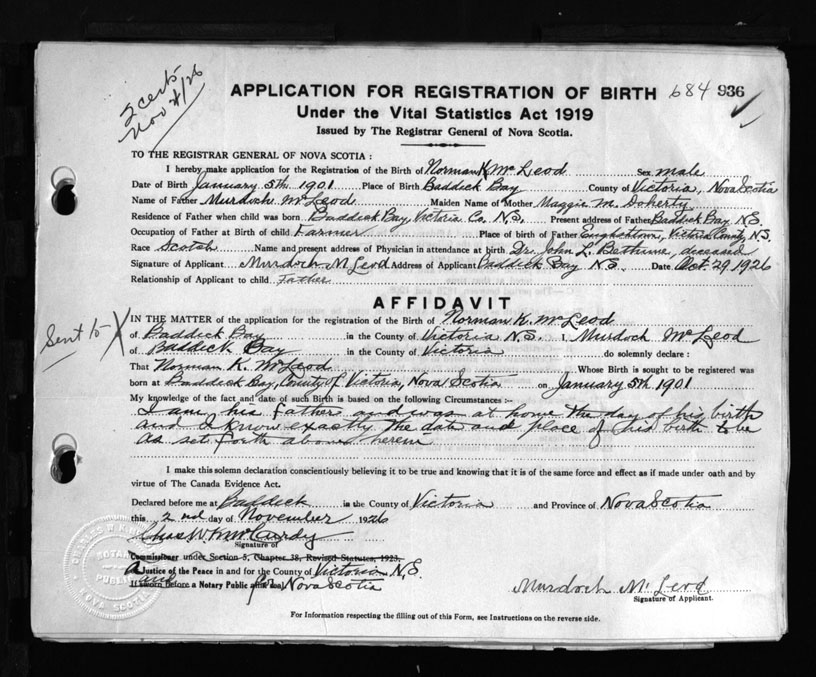 2 certs
Nov 4/26
APPLICATION FOR REGISTRATION OF BIRTH 684 936
Under the Vital Statistics Act 1919
Issued by The Registrar General of Nova Scotia.
TO THE REGISTRAR GENERAL OF NOVA SCOTIA :
I hereby make application for the Registration of the Birth of Norman K. McLeod Sex male
Date of Birth January 5th 1901 Place of Birth Baddick Bay County of Victoria, Nova Scotia
Name of Father Murdoch McLeod Maiden Name of Mother Maggie M. Doherty
Residence of Father when child was born Baddick Bay, Victoria Co. N.S. Present address of Father Baddick Bay N.S.
Occupation of Father at Birth of child Farmer Place of birth of Father Englishtown, Victoria County, N.S.
Race Scotch Name and present address of Physician in attendance at birth Dr. John L. Bethune, deceased
Signature of Applicant Murdoch McLeod Address of Applicant Baddick Bay N.S. Date Oct. 29 1926
Relationship of Applicant to child Father
AFFIDAVIT
Sent to X
IN THE MATTER of the application for the registration of the Birth of Norman K. McLeod
of Baddick Bay in the County of Victoria N.S. I, Murdoch McLeod
of Baddick Bay in the County of Victoria do solemnly declare :
That Norman K. McLeod Whose Birth is sought to be registered was
born at Baddick Bay, County of Victoria, Nova Scotia on January 5th 1901
My knowledge of the fact and date of such Birth is based on the following Circumstances :-
I am his father and was at home the day of his birth
and I know exactly the date and place of his birth to be
as set forth above herein
I make this solemn declaration conscientiously believing it to be true and knowing that it is of the same force and effect as if made under oath and by
virtue of The Canada Evidence Act.
Declared before me at Baddick in the County of Victoria and Province of Nova Scotia
this 2nd day of November 1926
Chas W K McCurdy
Signature of
Commissioner under Section 5, Chapter 38, Revised Statutes, 1923.
A Justice of the Peace in and for the County of Victoria N.S.
and
If sworn before a Notary Public for Nova Scotia
NOTARY
PUBLIC
NOVA SCOTIA
Murdoch McLeod
Signature of Applicant.
For Information respecting the filling out of this Form, see Instructions on the reverse side.